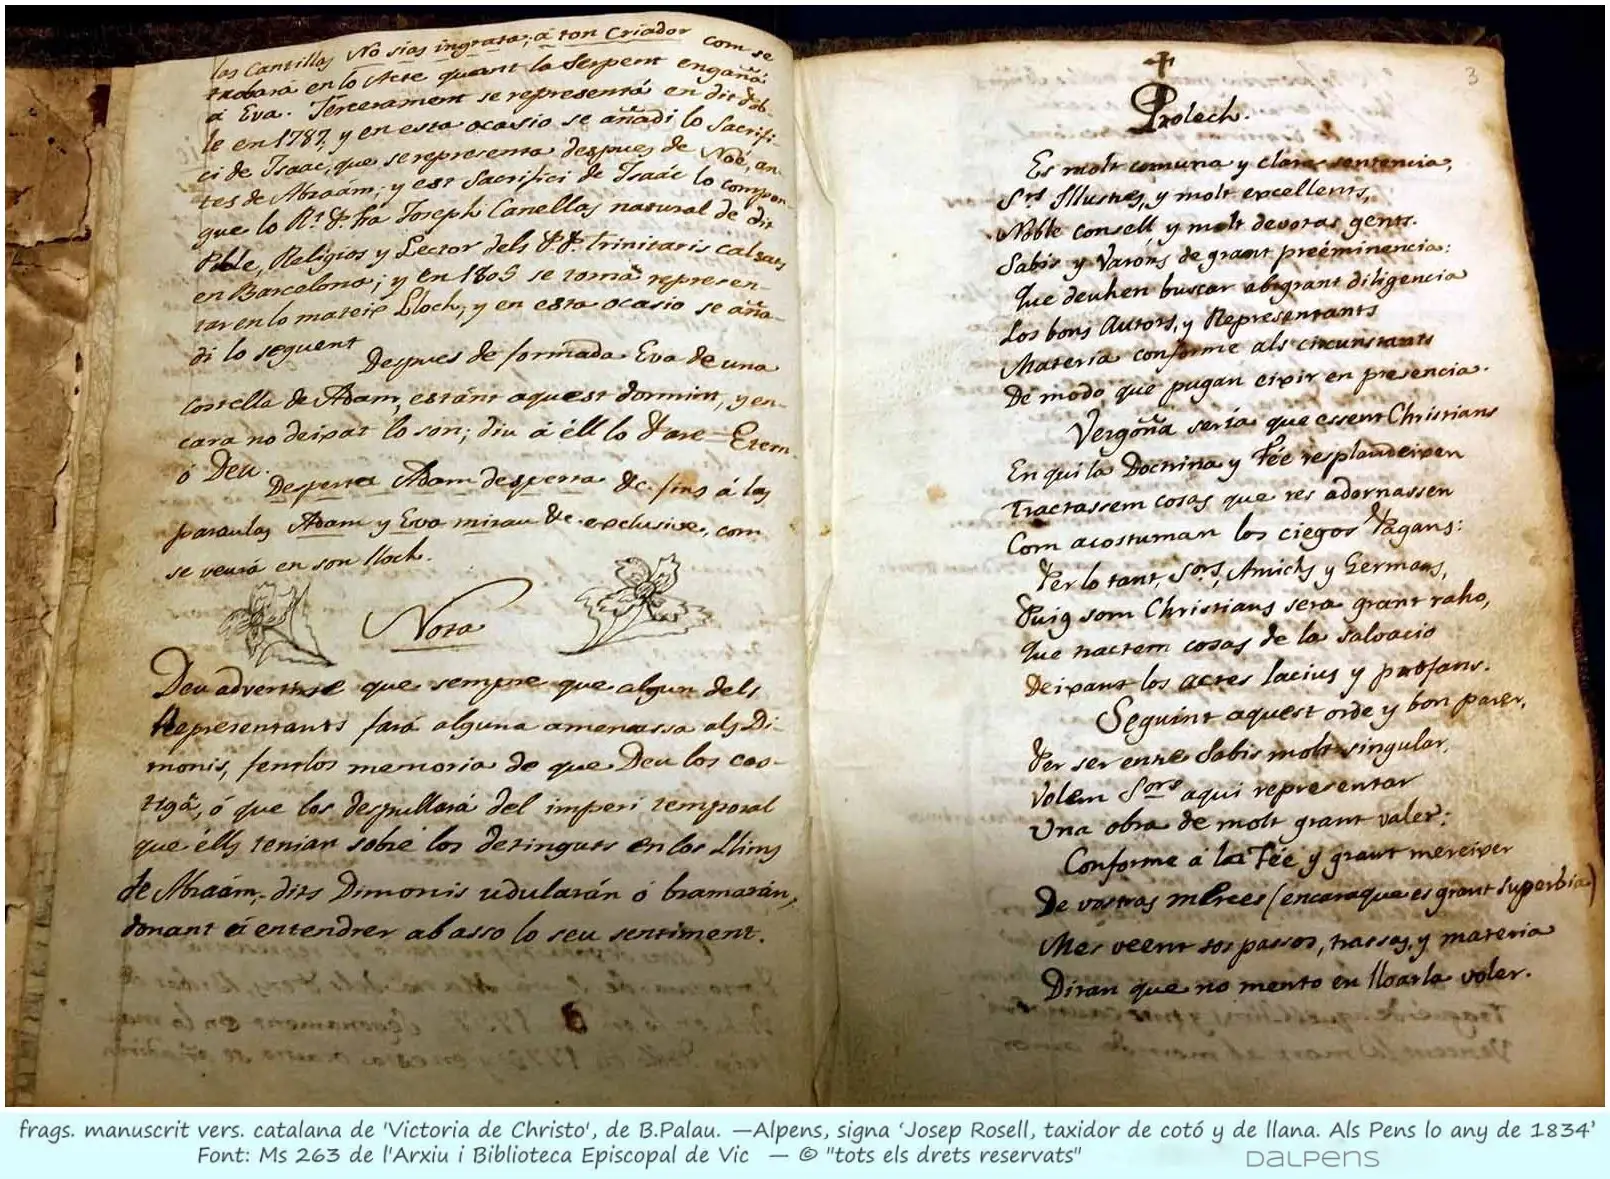 las Cantillas No sias ingrata; á ton Criador com se
trobará en lo Acte quant la Serpent engañá
á Eva. Terceramem se representá en dit Pob-
le en 1787, y en esta ocasio se añadi lo Sacrifi-
ci de Isaac, que se representa despues de Noè, an-
tes de Abraám; y est Sacrifici de Isaác lo compon-
gue lo Rt. P. Fra Joseph Canellas natural de dit
Poble, Religios y Lector dels P.P. Trinitaris calsats
en Barcelona; y en 1805 se torná represen-
tar en lo mateix Lloch, y en esta ocasio se aña-
di lo seguent
Despues de formada Eva de una
costella de Adam, estánt aquest dormint, y en-
cara no deixat lo son; diu á éll lo Pare Etern
ó Deu.
Desperta Adam desperta &c. fins á las
paraulas Adam y Eva mirau &c. exclusive, com
se veurá en son lloch.
Nota
Deu advertirse que sempre que algun dels
Representants fará alguna amenassa als Di-
monis, fentlos memoria de que Deu los cas-
tigá, ó que los despullará del imperi temporal
que élls tenian sobre los detinguts en los Llims
de Abraám, dits Dimonis udularán ó bramarán,
donant á entendrer ab asso lo seu sentiment.
3
Prolech.
Es molt comuna y clara sentencia,
Srs Illustres, y molt excellents,
Noble consell y molt devotas gents.
Sabis y Varóns de grant preéminencia:
Que deuhen buscar ab grant diligencia
Los bons Autors, y Representants
Materia conforme als circunstants
De modo que pugan eixir en presencia.
Vergoña seria que essent Christians
En qui la Doctrina y Fée resplandeixen
Tractassem cosas que res adornassen
Com acostuman los ciegos Pagans:
Per lo tant, Sors, Amichs y Germans,
Puig som Christians sera grant raho,
Que tractem cosas de la salvacio
Deixant los actes lacius y profans.
Seguint aquest orde y bon parer,
Per ser entre Sabis molt singular,
Volem Sors aqui representar
Una obra de molt grant valer:
Conforme á la Fée y grant mereixer
De vostras merces (encaraque es grant superbia)
Mes veent sos passos, trassas, y materia
Diran que no mento en lloarla voler.
frags. manuscrit vers. catalana de 'Victoria de Christo', de B.Palau. —Alpens, signa ‘Josep Rosell, taxidor de cotó y de llana. Als Pens lo any de 1834’
Font: Ms 263 de l'Arxiu i Biblioteca Episcopal de Vic — © "tots els drets reservats"
DALPENS